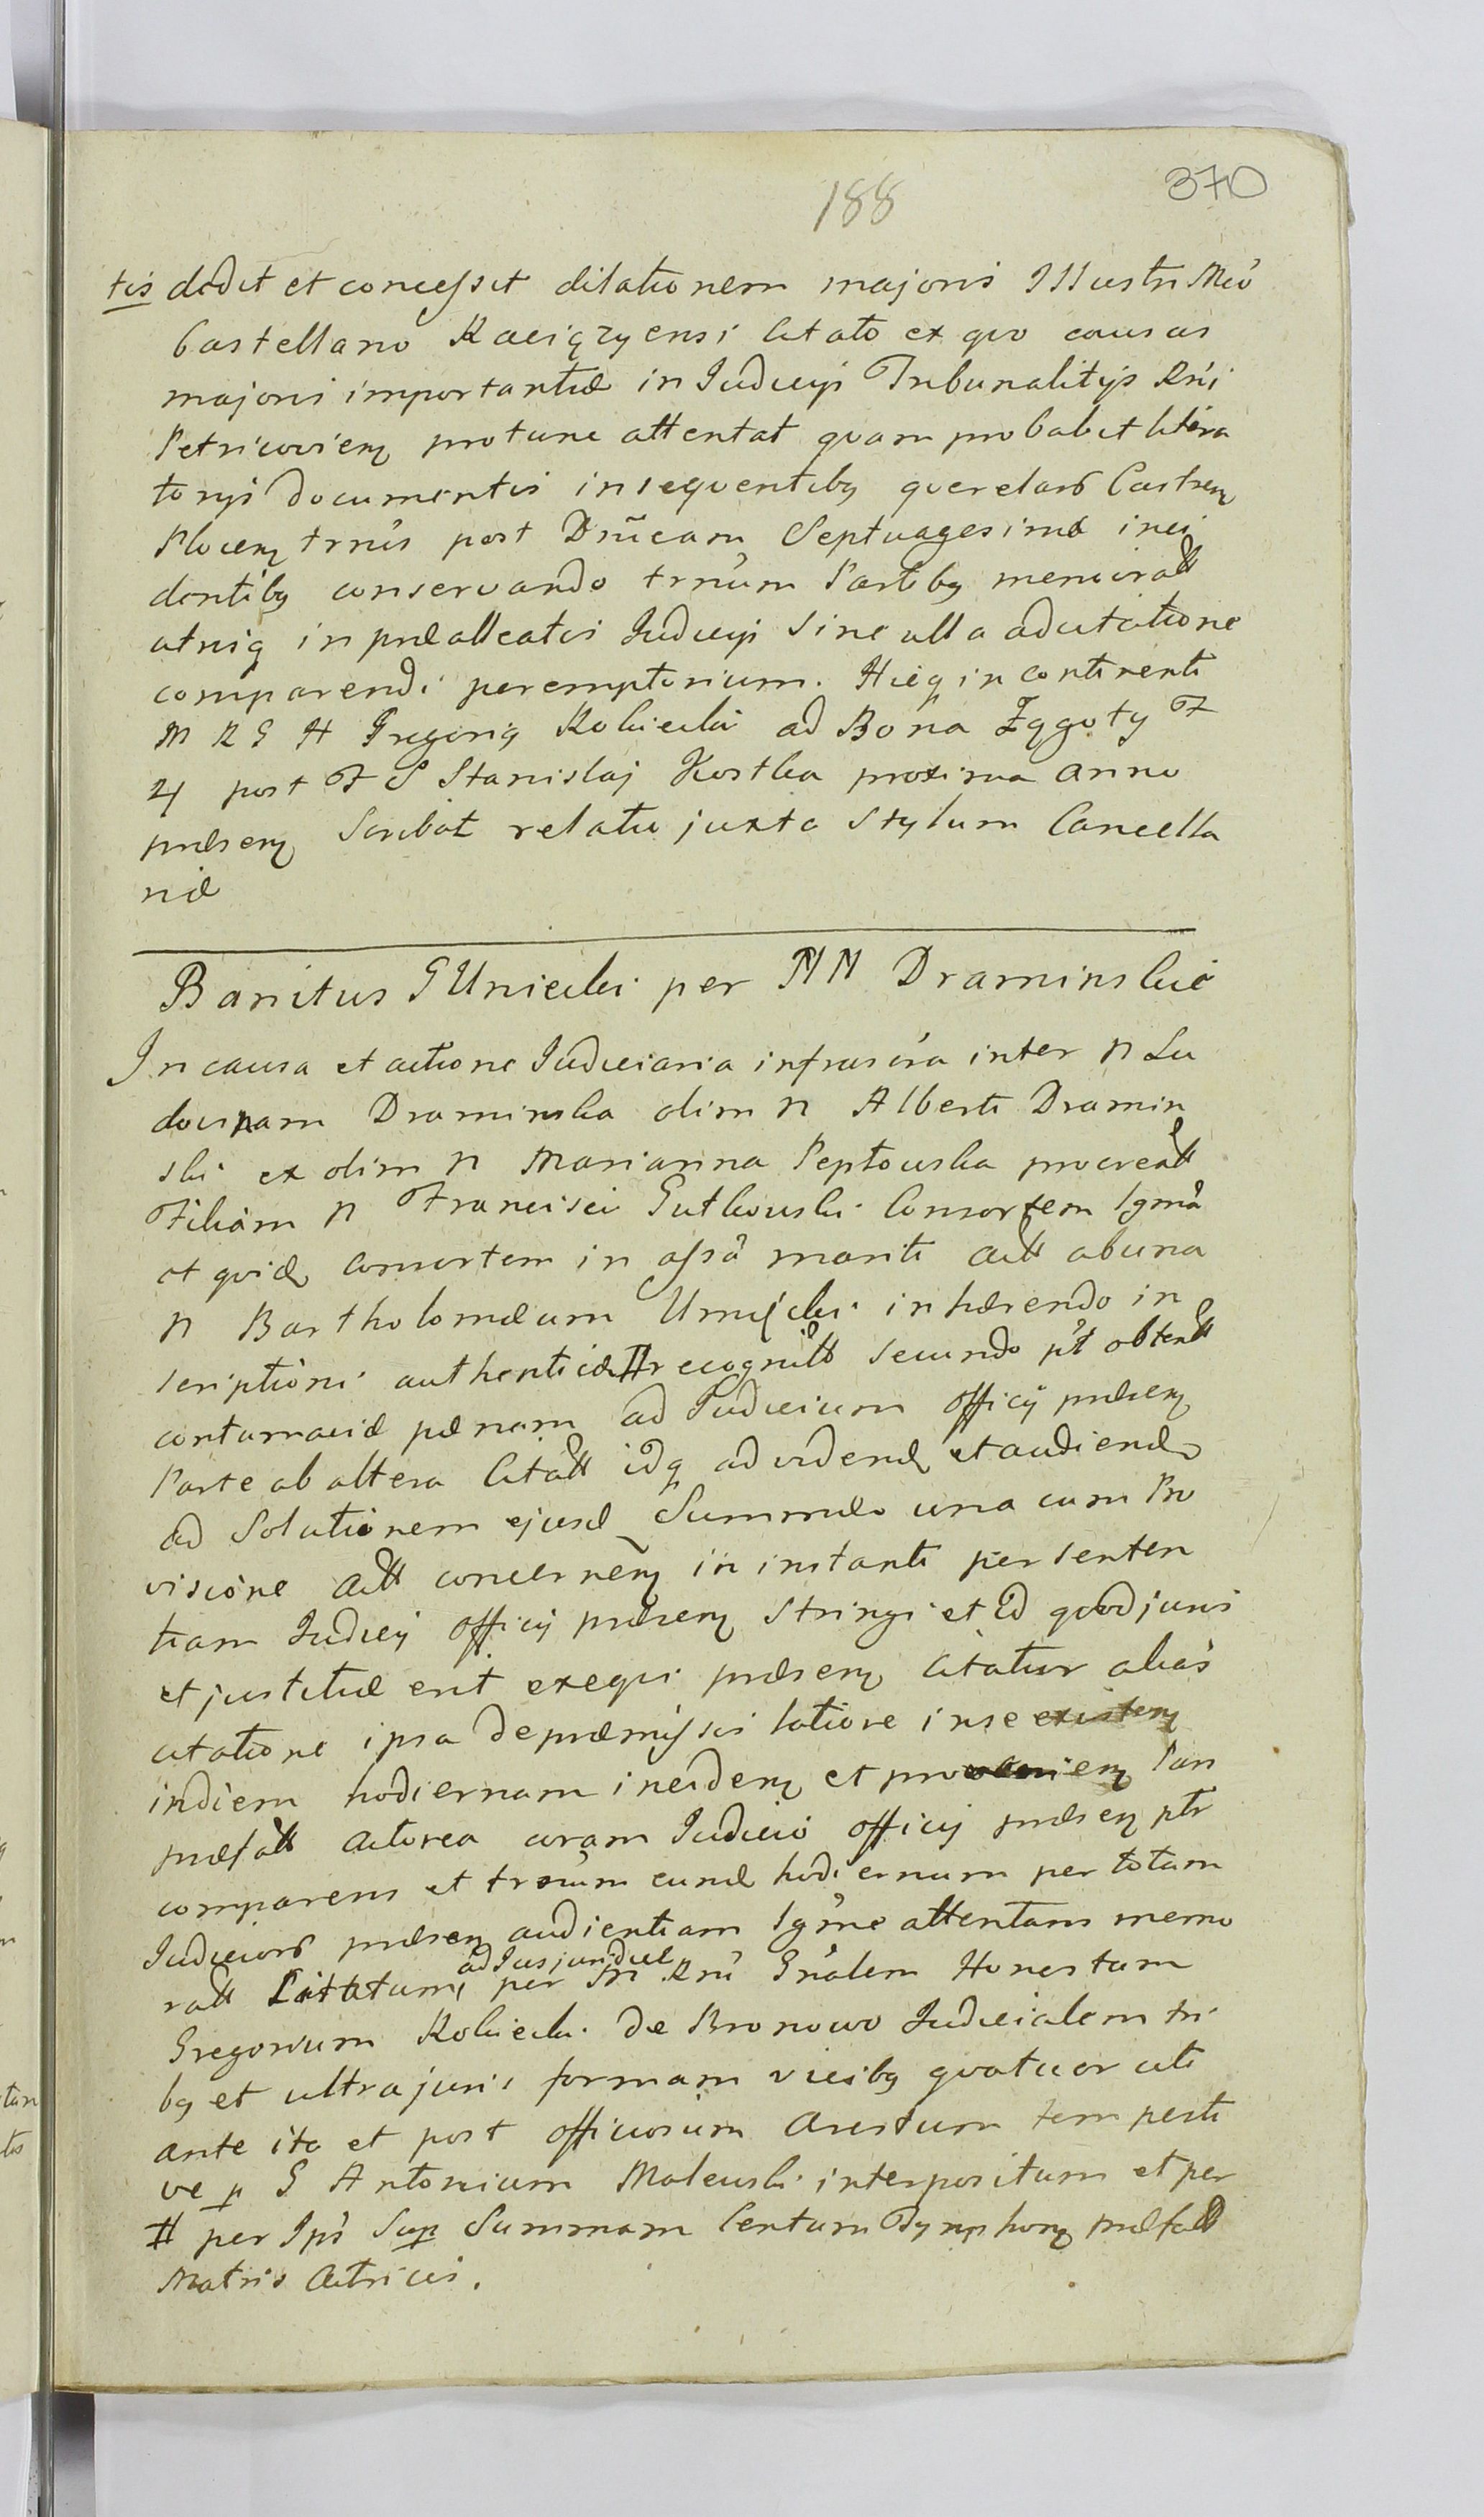 188
370
tis dedit et concessit dilationem majoris Illustri Mco
Castellano Raciązyensi Citato ex quo causas
majoris importantiæ in Judicijs Tribunalitijs Rni
Petricoviens protunc attentat quam probabit litera
torijs documentis insequentibq querelarō Castren
Plocen trnis post Dnicam Septuagesimæ inci
dentibq conservando trnum Partibq memoratt
utrisq in præallegatis Judicijs Sine ulla adcitatione
comparendi peremptorium. Hicq in continenti
M R G H Gregoriq Kobiecki ad Bona Zągoty F
4 post F S Stanislaj Kostka proxima anno
præsen Scribat relatio juxta Stylum Cancella
riæ
Banitus G Uniecki per MM Draminskie
In causa et actione Judiciaria infrascra inter N Lu
dovicam Draminska olim N Alberti Dramin
ski ex olim N Marianna Peptowska procreatt
Filiam N Francisci Gutkowski Consortem Igma
et quidem consortem in assa mariti Act ab una
N Bartholomæum Uniecki inhærendo in
scriptioni authenticæ # recognitt secundo pt obtentt
contumaciæ pænam ad Judicium officij præsen
Parte ab altera Citatt idq ad videnđ et audienđ
ad Solutionem ejusđ Summæ una cum Pro
visione Act concernen in instanti per senten
tiam Judicij officij præsen Stringi et id quod juris
et justitiæ erit exequi præsen Citatur alias
citatione ipsa de præmissis latiore in se existen
in diem hodiernam inciden et provenien Pars
præfatt Actorea coram Judicio officij præsen ptr
comparens et trnum eunđ hodiernum per totam
Judiciorō præsen audientiam Igme attentans memo
ratt Citatum, ad Jusjuridice per M Rni Gnalem Honestum
Gregorium Kobiecki de Bronowo Judicialem tri
bq et ultra juris formam vicibq quatuor uti
ante ita et post officiosum Arestum tempesti
ve p G Antonium Malewski interpositum et per
# per Ips Sup Summam Centum Tymphon præfatt
Matris Actricis.